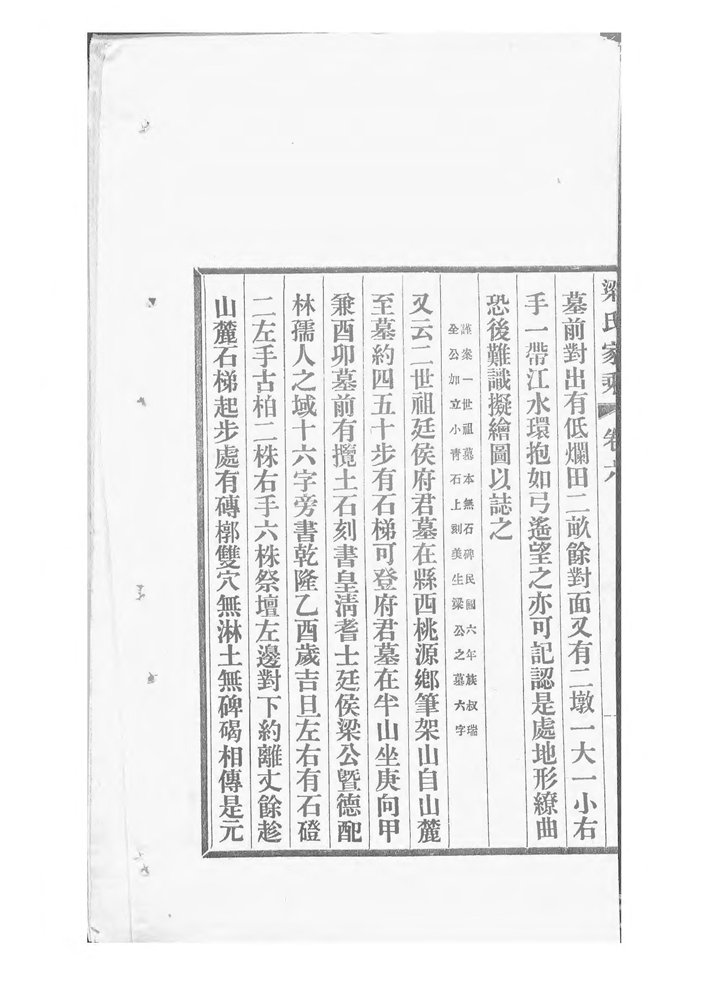 梁氏家乘 卷六
墓前對出有低爛田二畝餘對面又有二墩一大一小右
手一帶江水環抱如弓遙望之亦可記認是處地形繚曲
恐後難識擬繪圖以誌之
謹案一世祖墓本無石碑民國六年族叔瑞
全公加立小青石上刻美生梁公之墓六字
又云二世祖廷侯府君墓在縣西桃源鄉筆架山自山麓
至墓約四五十步有石梯可登府君墓在半山坐庚向甲
兼酉卯墓前有攬土石刻書皇清耆士廷侯梁公暨德配
林孺人之域十六字旁書乾隆乙酉歲吉旦左右有石磴
二左手古柏二株右手六株祭壇左邊對下約離丈餘趁
山麓石梯起步處有磚槨雙穴無淋土無碑碣相傳是元